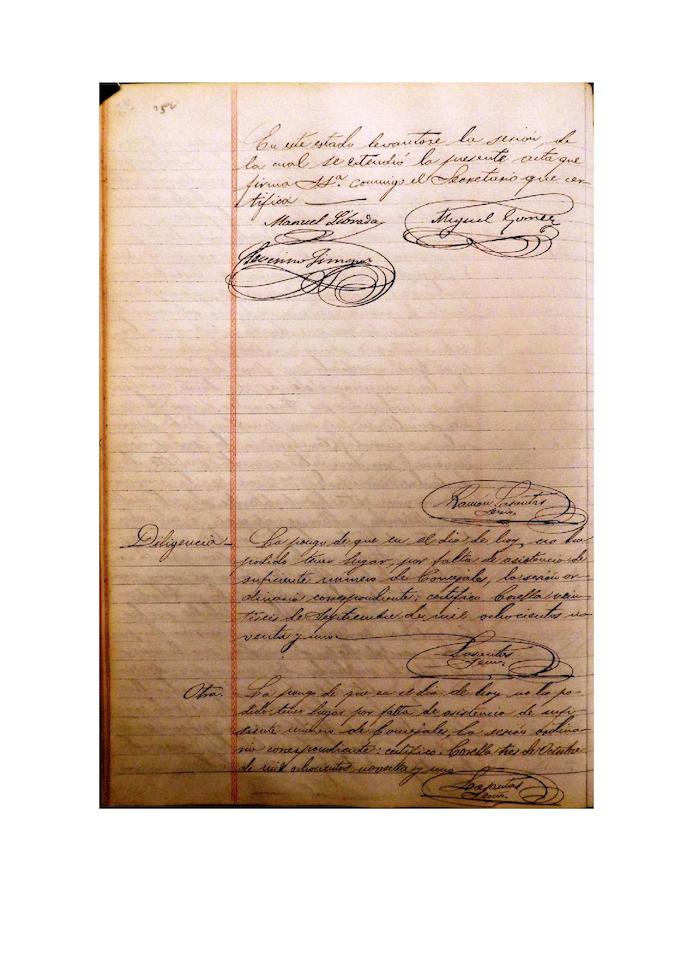 252
En este estado levantose la sesión, de
la cual se estendió la presente acta que
firma S.Sª. conmigo el Secretario que cer-
tifica
Manuel Librada Miguel Gomez
Jimenez
Ramón Lasantas
Srio.
Diligencia - La pongo de que en el dia de hoy, no ha
podido tener lugar, por falta de asistencia de
suficiente número de Concejales, la sesión or-
dinaria correspondiente: certifico Corella vein-
tiseis de Septiembre de mil ochocientos no-
venta y uno
Lasantas
Srio.
Otra. - La pongo de que en el dia de hoy no ha po-
dido tener lugar por falta de asistencia de sufi-
ciente número de Concejales, la sesión ordina-
ria correspondiente: certifico. Corella tres de Octubre
de mil ochocientos noventa y uno
Lasantas
Srio.